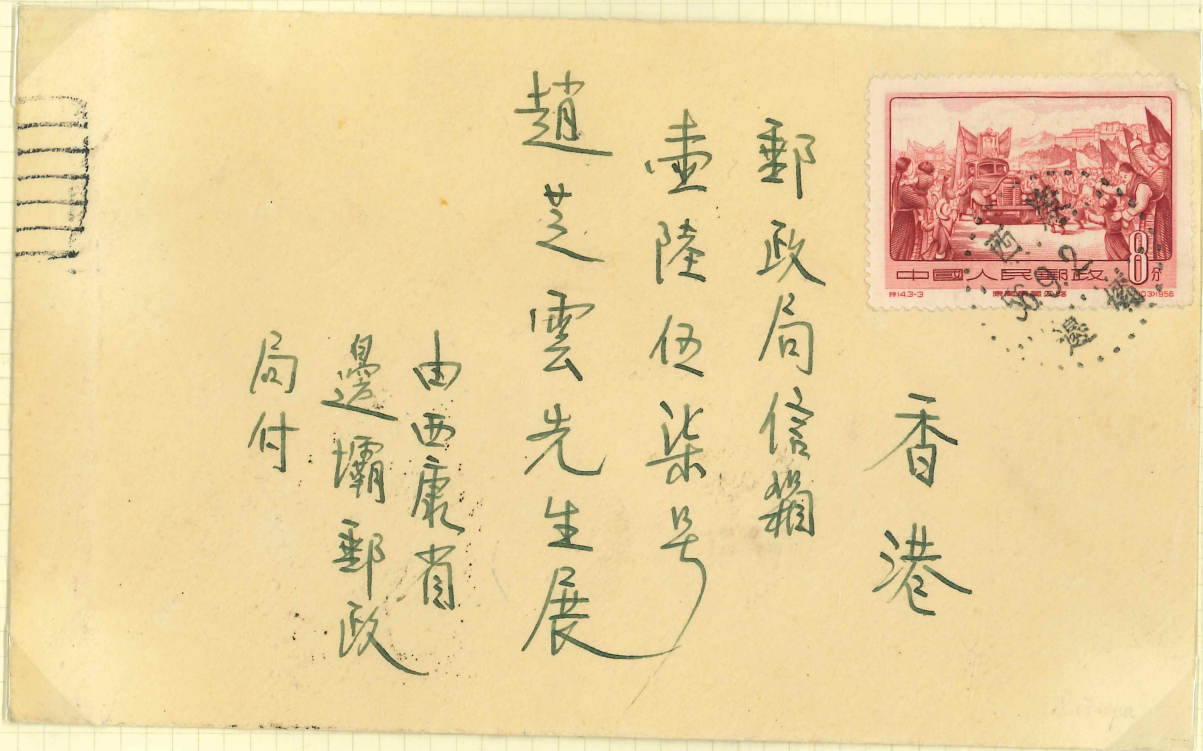 香港
郵政局信箱
壹陸伍柒号
趙芝雲先生展
由西康省
邊壩郵政
局付
中國人民郵政
8分
特14.3-3
康藏青藏公路
1956
西康
56.9.2
邊壩